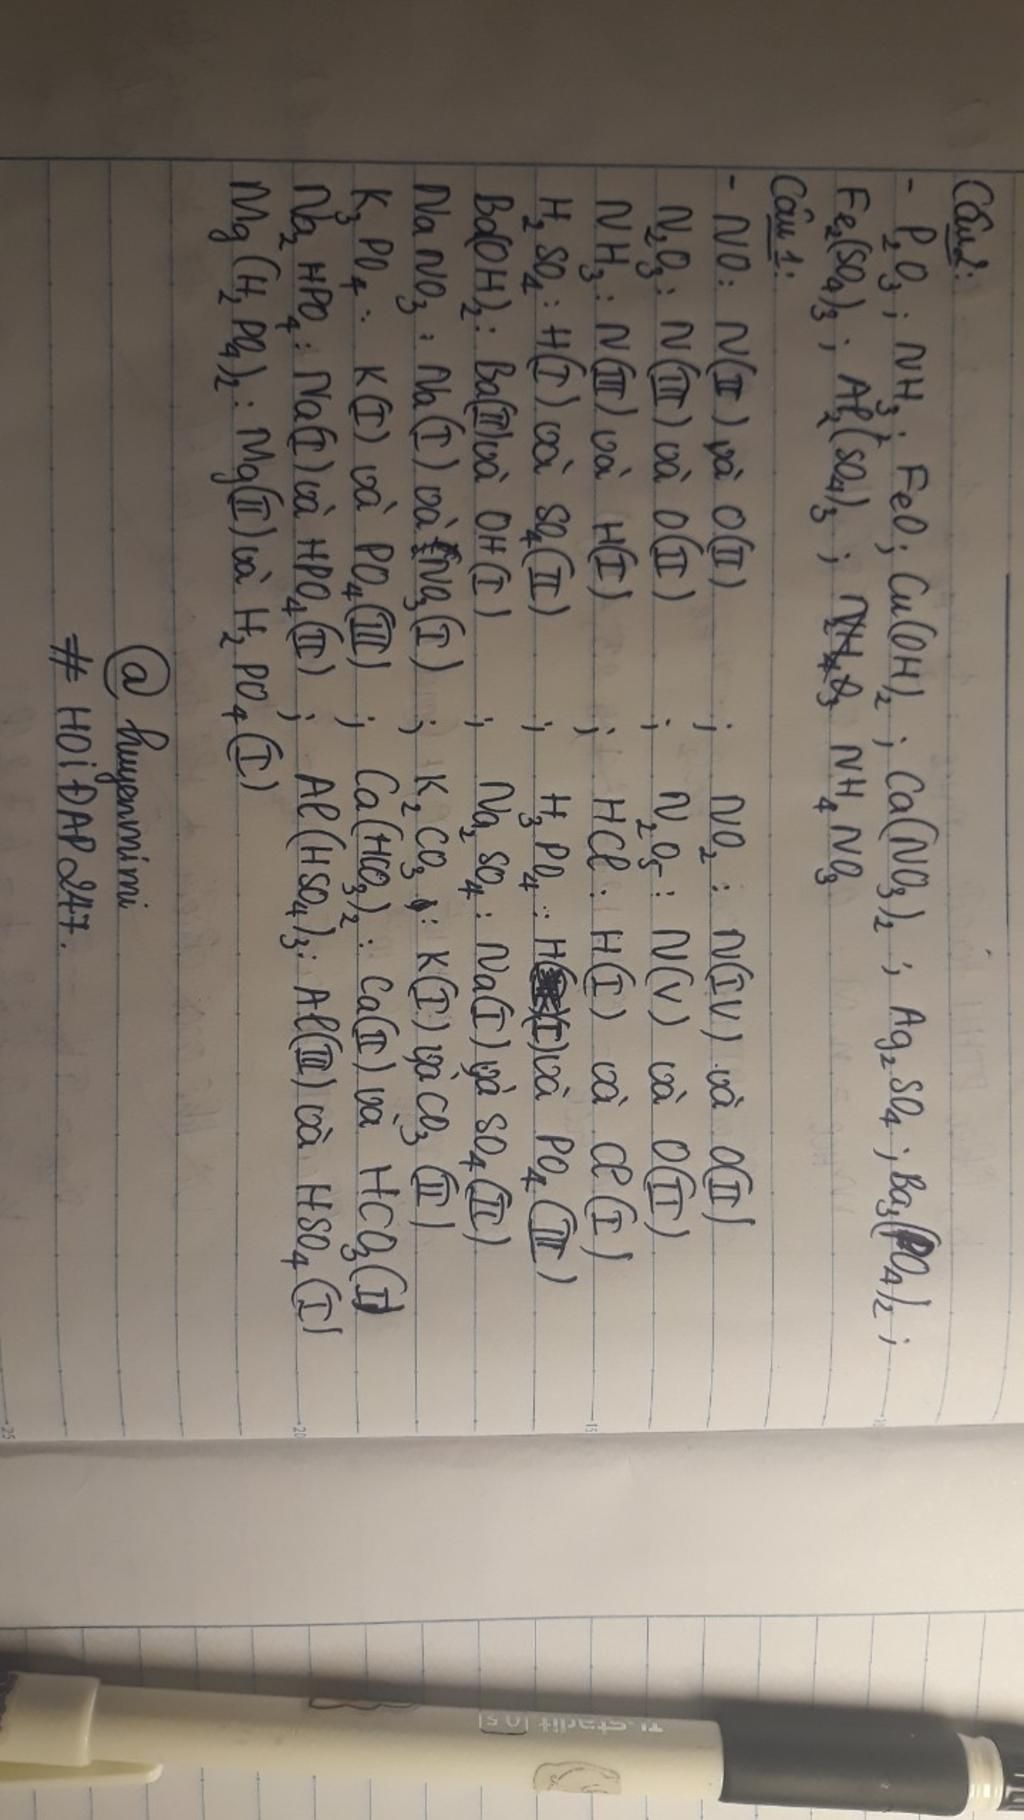 Câu 2:
- P2O3; NH3; FeO; Cu(OH)2; Ca(NO3)2; Ag2SO4; Ba3(PO4)2;
Fe2(SO4)3; Al2(SO4)3; NH4NO3
Câu 1:
- NO: N(II) và O(II) ; NO2: N(IV) và O(II)
N2O3: N(III) và O(II) ; N2O5: N(V) và O(II)
NH3: N(III) và H(I) ; HCl: H(I) và Cl(I)
H2SO4: H(I) và SO4(II) ; H3PO4: H(I) và PO4(III)
Ba(OH)2: Ba(II) và OH(I) ; Na2SO4: Na(I) và SO4(II)
NaNO3: Na(I) và NO3(I) ; K2CO3: K(I) và CO3(II)
K3PO4: K(I) và PO4(III) ; Ca(HCO3)2: Ca(II) và HCO3(I)
Na2HPO4: Na(I) và HPO4(II) ; Al(HSO4)3: Al(III) và HSO4(I)
Mg(H2PO4)2: Mg(II) và H2PO4(I)
@huyenmimi
# HOIĐAP247.